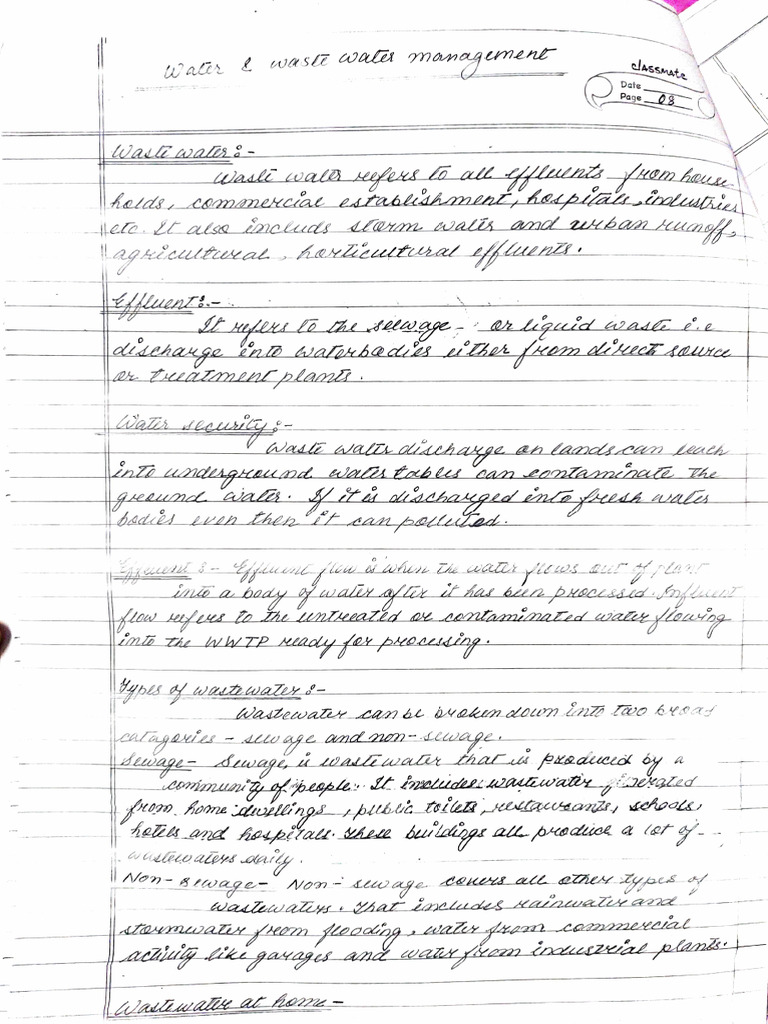 Water & waste water management
classmate
Date
Page 08
Waste water:-
Waste water refers to all effluents from house
holds, commercial establishment, hospitals, industries
etc. It also includs storm water and urban runoff,
agricultural, horticultural effluents.
Effluent:-
It refers to the seewage - or liquid waste i.e
discharge into waterbodies either from direct source
or treatment plants.
Water security:-
Waste water discharge on lands can leach
into underground water tables can contaminate the
ground water. If it is discharged into fresh water
bodies even then it can polluted.
Effluent :- Effluent flow is when the water flows out of plant
into a body of water after it has been processed. Influent
flow refers to the untreated or contaminated water flowing
into the WWTP ready for processing.
Types of wastewater:-
Wastewater can be broken down into two broad
catagories - sewage and non-sewage.
Sewage- Sewage, is wastewater that is produced by a
community of people. It includes wastewater generated
from home dwellings, public toilets, restaurants, schools,
hotels and hospitals. These buildings all produce a lot of
wastewaters daily.
Non-sewage- Non-sewage covers all other types of
wastewaters. That includes rainwater and
stormwater from flooding, water from commercial
activity like garages and water from industrial plants.
Wastewater at home-